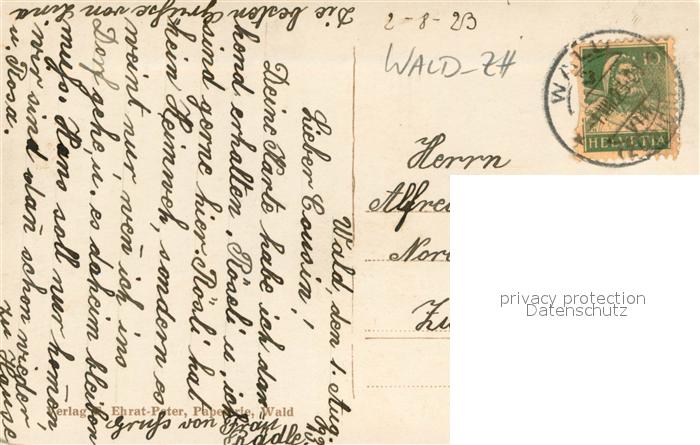 Wald, den 1. Aug. 23
Lieber Cousin!
Deine Karte habe ich dan-
kend erhalten. Röseli u. ich
sind gerne hier. Rösli hat
kein Heimweh, sondern es
weint nur, wen̄ ich ins
Dorf gehe u. es daheim bleiben
muss. Hans soll nur kom̄en,
wir sind dan̄ schon wieder
zu Hause
Die besten Grüsse von Lina
u. Rosa.
Gruss von Frau
2-8-23
WALD-ZH
WALD
10
HELVETIA
Herrn
Alfred
Zü
privacy protection
Datenschutz
Verlag E. Ehrat-Peter, Papeterie, Wald